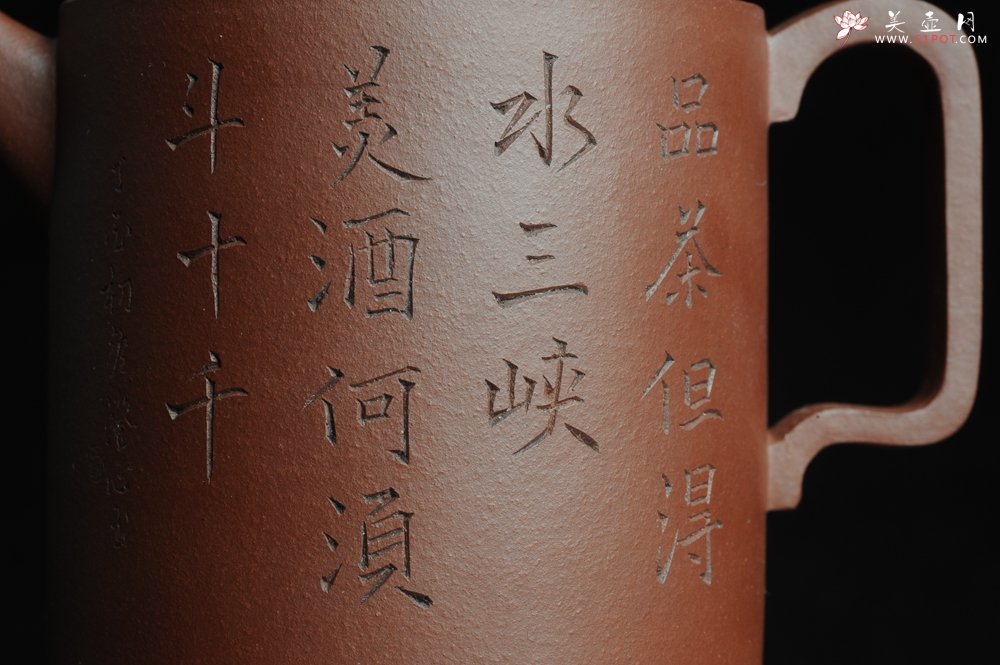 品茶但得
水三峡
羙酒何湏
斗十千
美壶网
WWW.51POT.COM